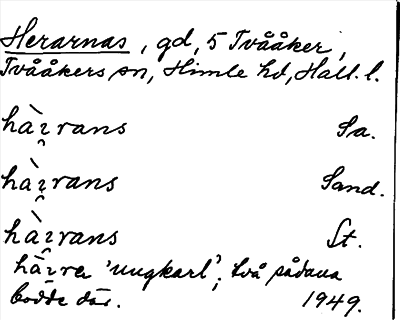 Herarnas, gd, 5 Tvååker,
Tvååkers sn, Himle hd, Hall. l.
hàꝛrans Sa.
hàꝛrans Sand.
hàꝛrans St.
hàꝛra 'ungkarl'; två sådana
bodde där. 1949.